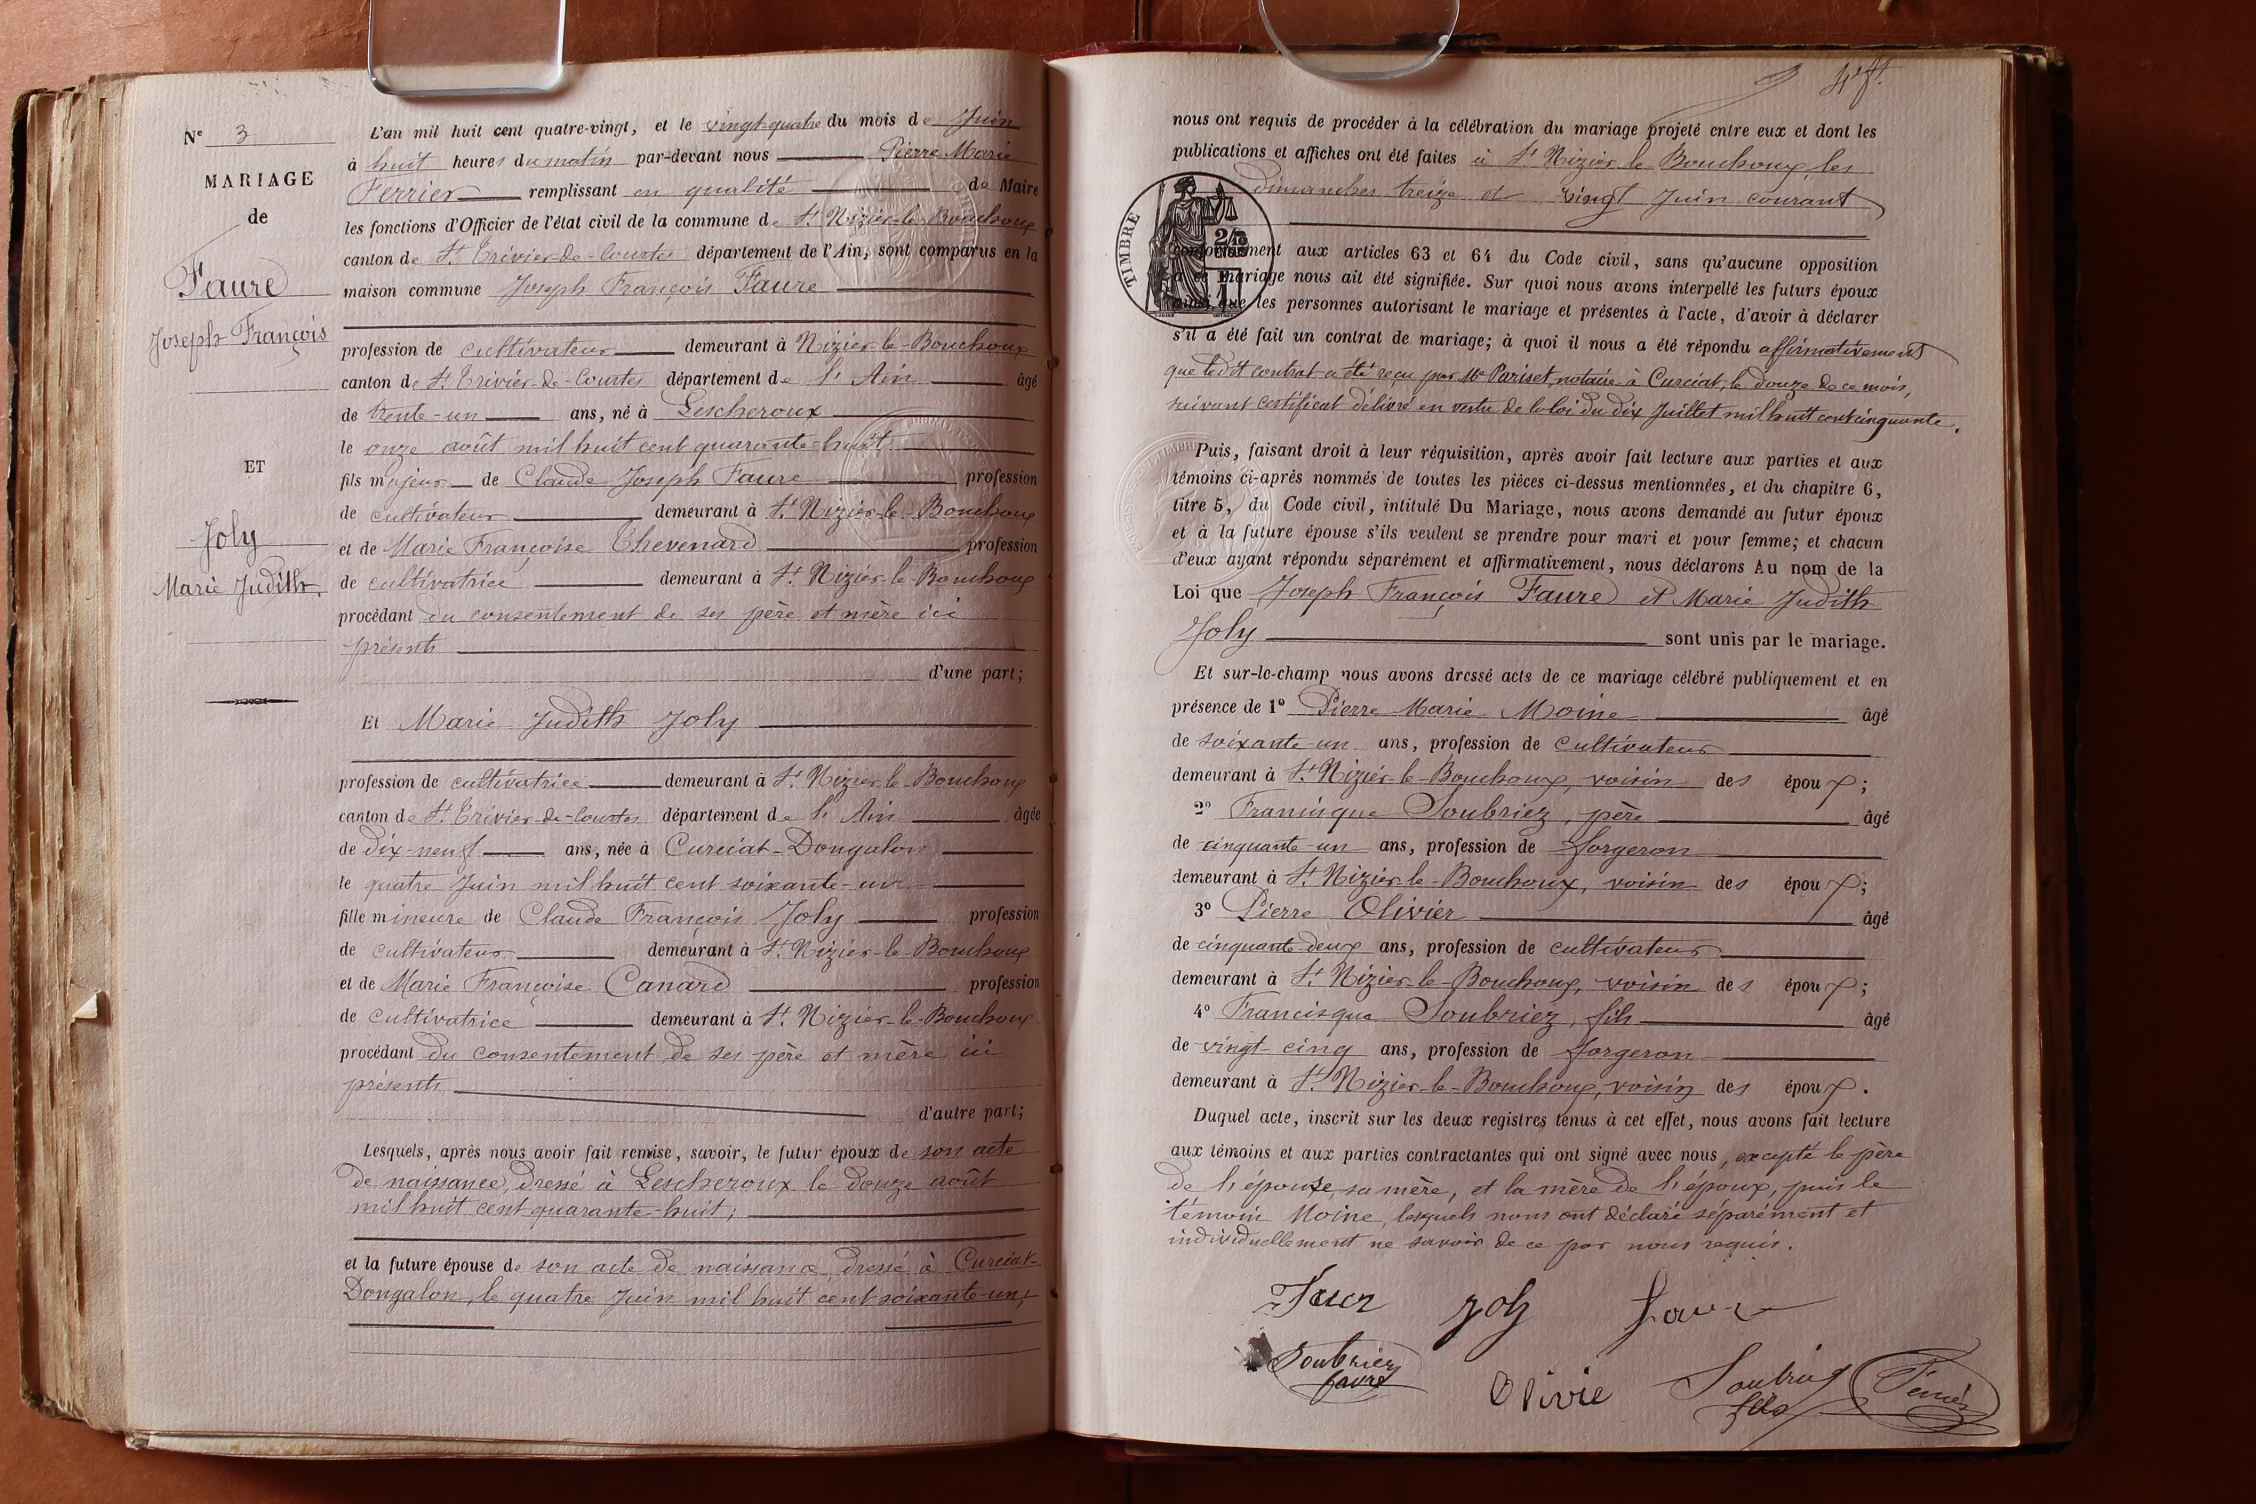 Nº 3
MARIAGE
de
Faure
Joseph François
ET
Joly
Marie Judith.
L'an mil huit cent quatre-vingt, et le vingt-quatre du mois de Juin
à huit heures du matin par-devant nous Pierre Marie
Ferrier remplissant en qualité de Maire
les fonctions d'Officier de l'état civil de la commune de St Nizier-le-Bouchoux
canton de St Trivier-de-Courtes département de l'Ain, sont comparus en la
maison commune Joseph François Faure
profession de cultivateur demeurant à Nizier-le-Bouchoux
canton de St Trivier-de-Courtes département de l'Ain âgé
de trente-un ans, né à Lescheroux
le onze août mil huit cent quarante-huit
fils majeur de Claude Joseph Faure profession
de cultivateur demeurant à St Nizier-le-Bouchoux
et de Marie Françoise Thevenard profession
de cultivatrice demeurant à St Nizier-le-Bouchoux
procédant du consentement de ses père et mère ici
présents
d'une part;
Et Marie Judith Joly
profession de cultivatrice demeurant à St Nizier-le-Bouchoux
canton de St Trivier-de-Courtes département de l'Ain âgée
de dix-neuf ans, née à Curciat-Dongalon
le quatre Juin mil huit cent soixante-un
fille mineure de Claude François Joly profession
de cultivateur demeurant à St Nizier-le-Bouchoux
et de Marie Françoise Canard profession
de cultivatrice demeurant à St Nizier-le-Bouchoux
procédant du consentement de ses père et mère ici
présents
d'autre part;
Lesquels, après nous avoir fait remise, savoir, le futur époux de son acte
de naissance, dressé à Lescheroux le douze août
mil huit cent quarante-huit;
et la future épouse de son acte de naissance, dressé à Curciat-
Dongalon, le quatre Juin mil huit cent soixante-un,
nous ont requis de procéder à la célébration du mariage projeté entre eux et dont les
publications et affiches ont été faites à St Nizier le Bouchoux les
dimanches treize et vingt Juin courant
TIMBRE
conformément aux articles 63 et 64 du Code civil, sans qu'aucune opposition
à ce mariage nous ait été signifiée. Sur quoi nous avons interpellé les futurs époux
ainsi que les personnes autorisant le mariage et présentes à l'acte, d'avoir à déclarer
s'il a été fait un contrat de mariage; à quoi il nous a été répondu affirmativement
que ledit contrat a été reçu par Me Pariset, notaire à Curciat, le douze de ce mois,
suivant certificat délivré en vertu de la loi du dix Juillet mil huit cent cinquante.
Puis, faisant droit à leur réquisition, après avoir fait lecture aux parties et aux
témoins ci-après nommés de toutes les pièces ci-dessus mentionnées, et du chapitre 6,
titre 5, du Code civil, intitulé Du Mariage, nous avons demandé au futur époux
et à la future épouse s'ils veulent se prendre pour mari et pour femme; et chacun
d'eux ayant répondu séparément et affirmativement, nous déclarons Au nom de la
Loi que Joseph François Faure et Marie Judith
Joly sont unis par le mariage.
Et sur-le-champ nous avons dressé acte de ce mariage célébré publiquement et en
présence de 1º Pierre Marie Moine âgé
de soixante-un ans, profession de cultivateur
demeurant à St Nizier-le-Bouchoux, voisin des époux;
2º Francisque Soubriez, père âgé
de cinquante-un ans, profession de forgeron
demeurant à St Nizier-le-Bouchoux, voisin des époux;
3º Pierre Olivier âgé
de cinquante-deux ans, profession de cultivateur
demeurant à St Nizier-le-Bouchoux, voisin des époux;
4º Francisque Soubriez, fils âgé
de vingt-cinq ans, profession de forgeron
demeurant à St Nizier-le-Bouchoux, voisin des époux.
Duquel acte, inscrit sur les deux registres tenus à cet effet, nous avons fait lecture
aux témoins et aux parties contractantes qui ont signé avec nous, excepté le père
de l'épouse, sa mère, et la mère de l'époux, puis le
témoin Moine, lesquels nous ont déclaré séparément et
individuellement ne savoir de ce par nous requis.
joly
Soubriez
Olivie
fils